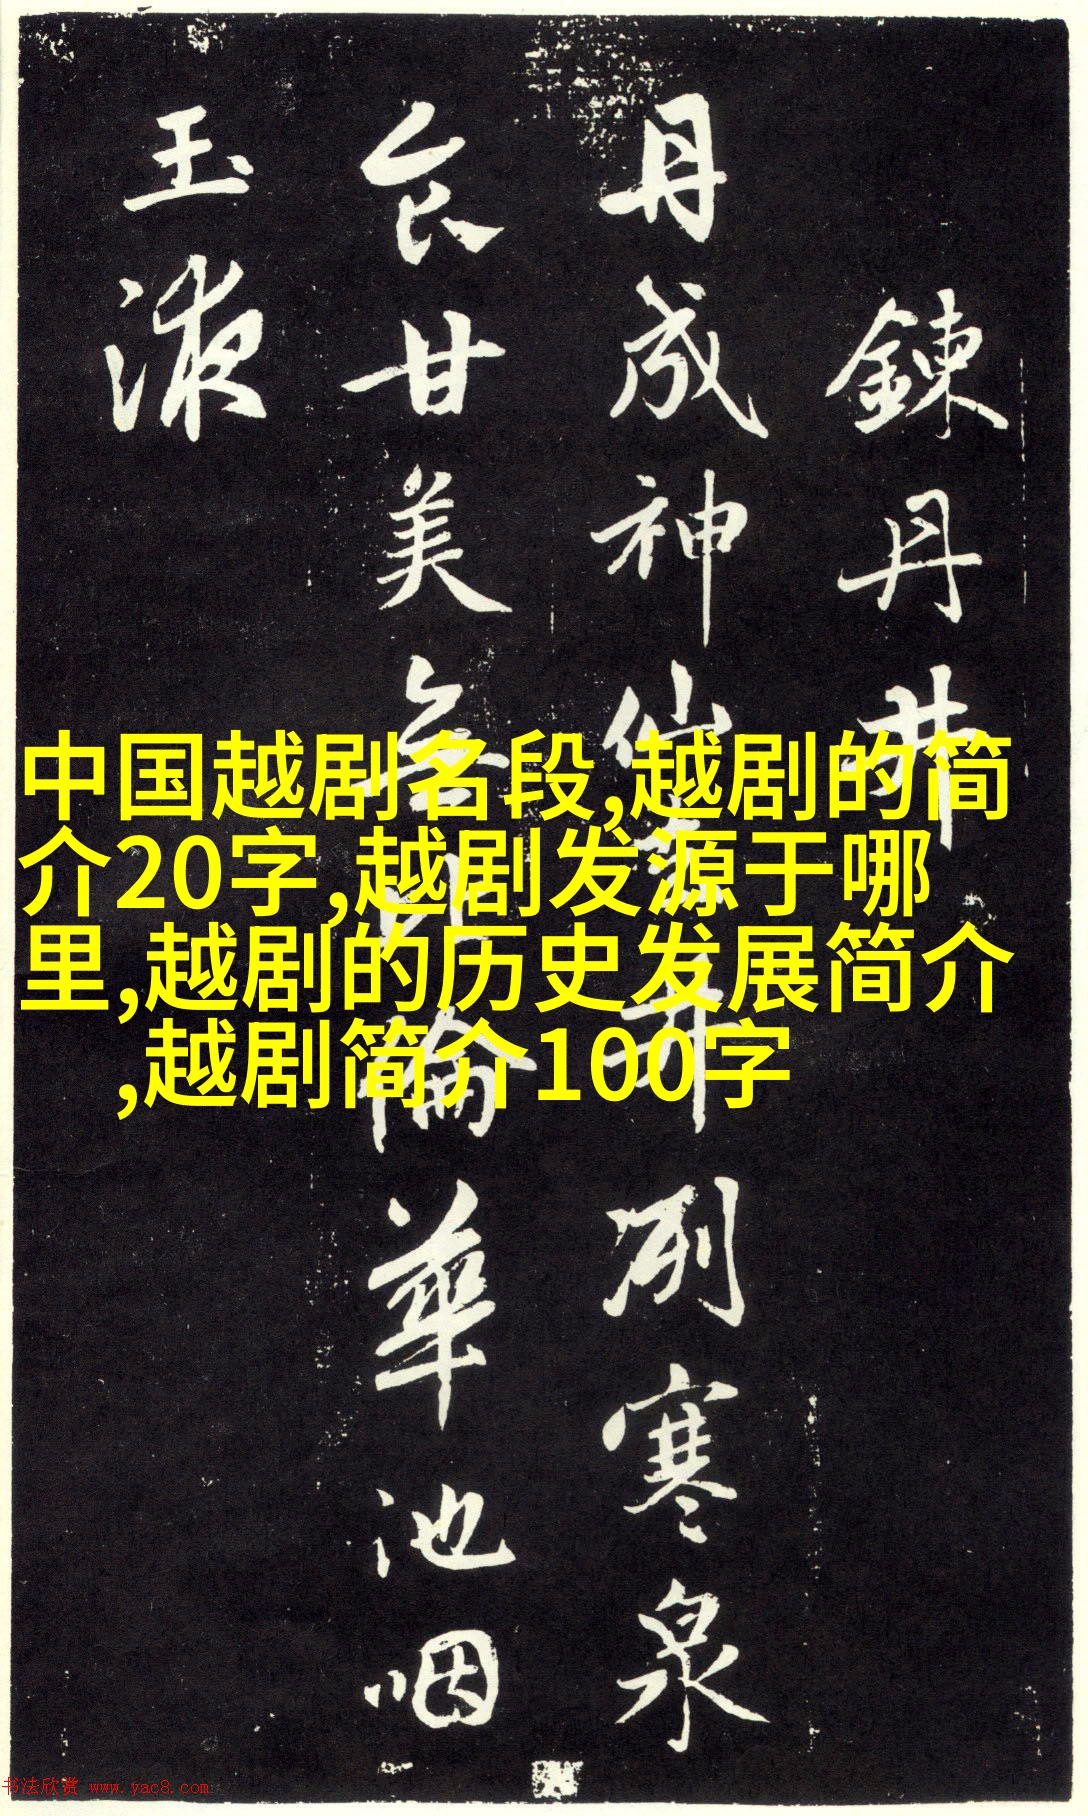 鍊丹井
丹成神仙井冽寒泉
食甘美無倫華池咽
玉液
中国越剧名段,越剧的简
介20字,越剧发源于哪
里,越剧的历史发展简介
,越剧简介100字
书法欣赏 www.yac8.com